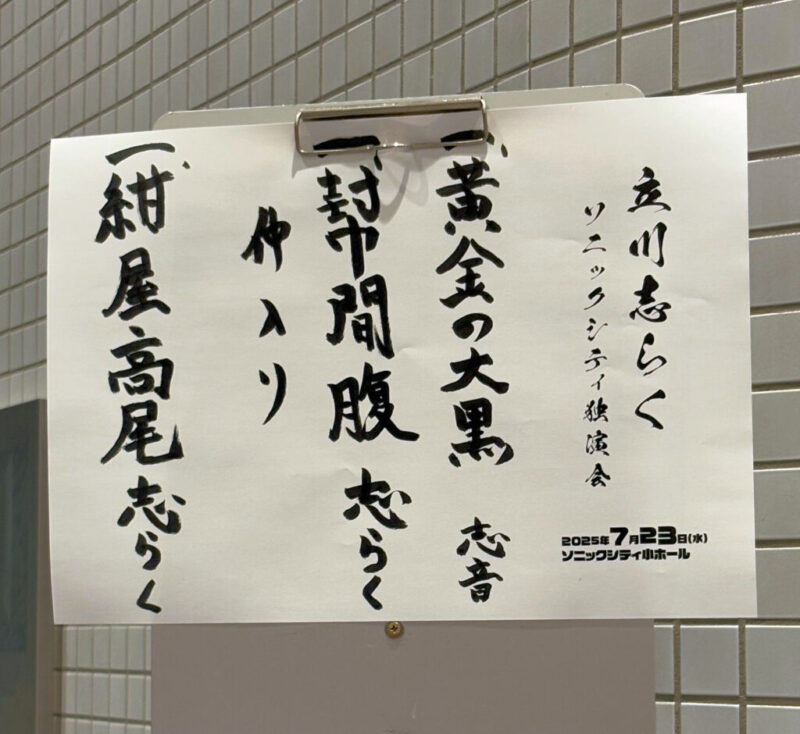 立川志らく
ソニックシティ独演会
2025年7月23日(水)
ソニックシティ小ホール
一、黄金の大黒 志音
一、幇間腹 志らく
仲入り
一、紺屋高尾 志らく